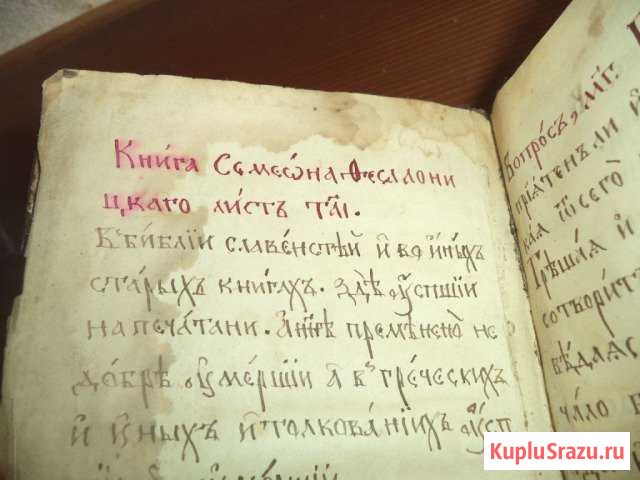 Кни́га Семеѡ́на Ѳесалони
цкаго ли́стъ тл҃і.
Въ би́блїи славе́нстѣй и҆ во и҆ны́хъ
ста́рыхъ кни́гахъ. здѣ̀ оу҆́спшїи
напеча́тани. а҆ нн҃ѣ премѣнено̀ не
до́брѣ оу҆ме́ршїи ꙗ҆ въ гре́ческихъ
и҆ и҆ны́хъ и҆ толкова́нїихъ оу҆сп
Вопро́съ, мг҃і:
прїѧ́тенъ ли и҆
каѧ ѿ сегѡ̀
Грѣ́шаѧ и҆
сотвори́т
вѣдлас
ча́ло
KupluSrazu.ru